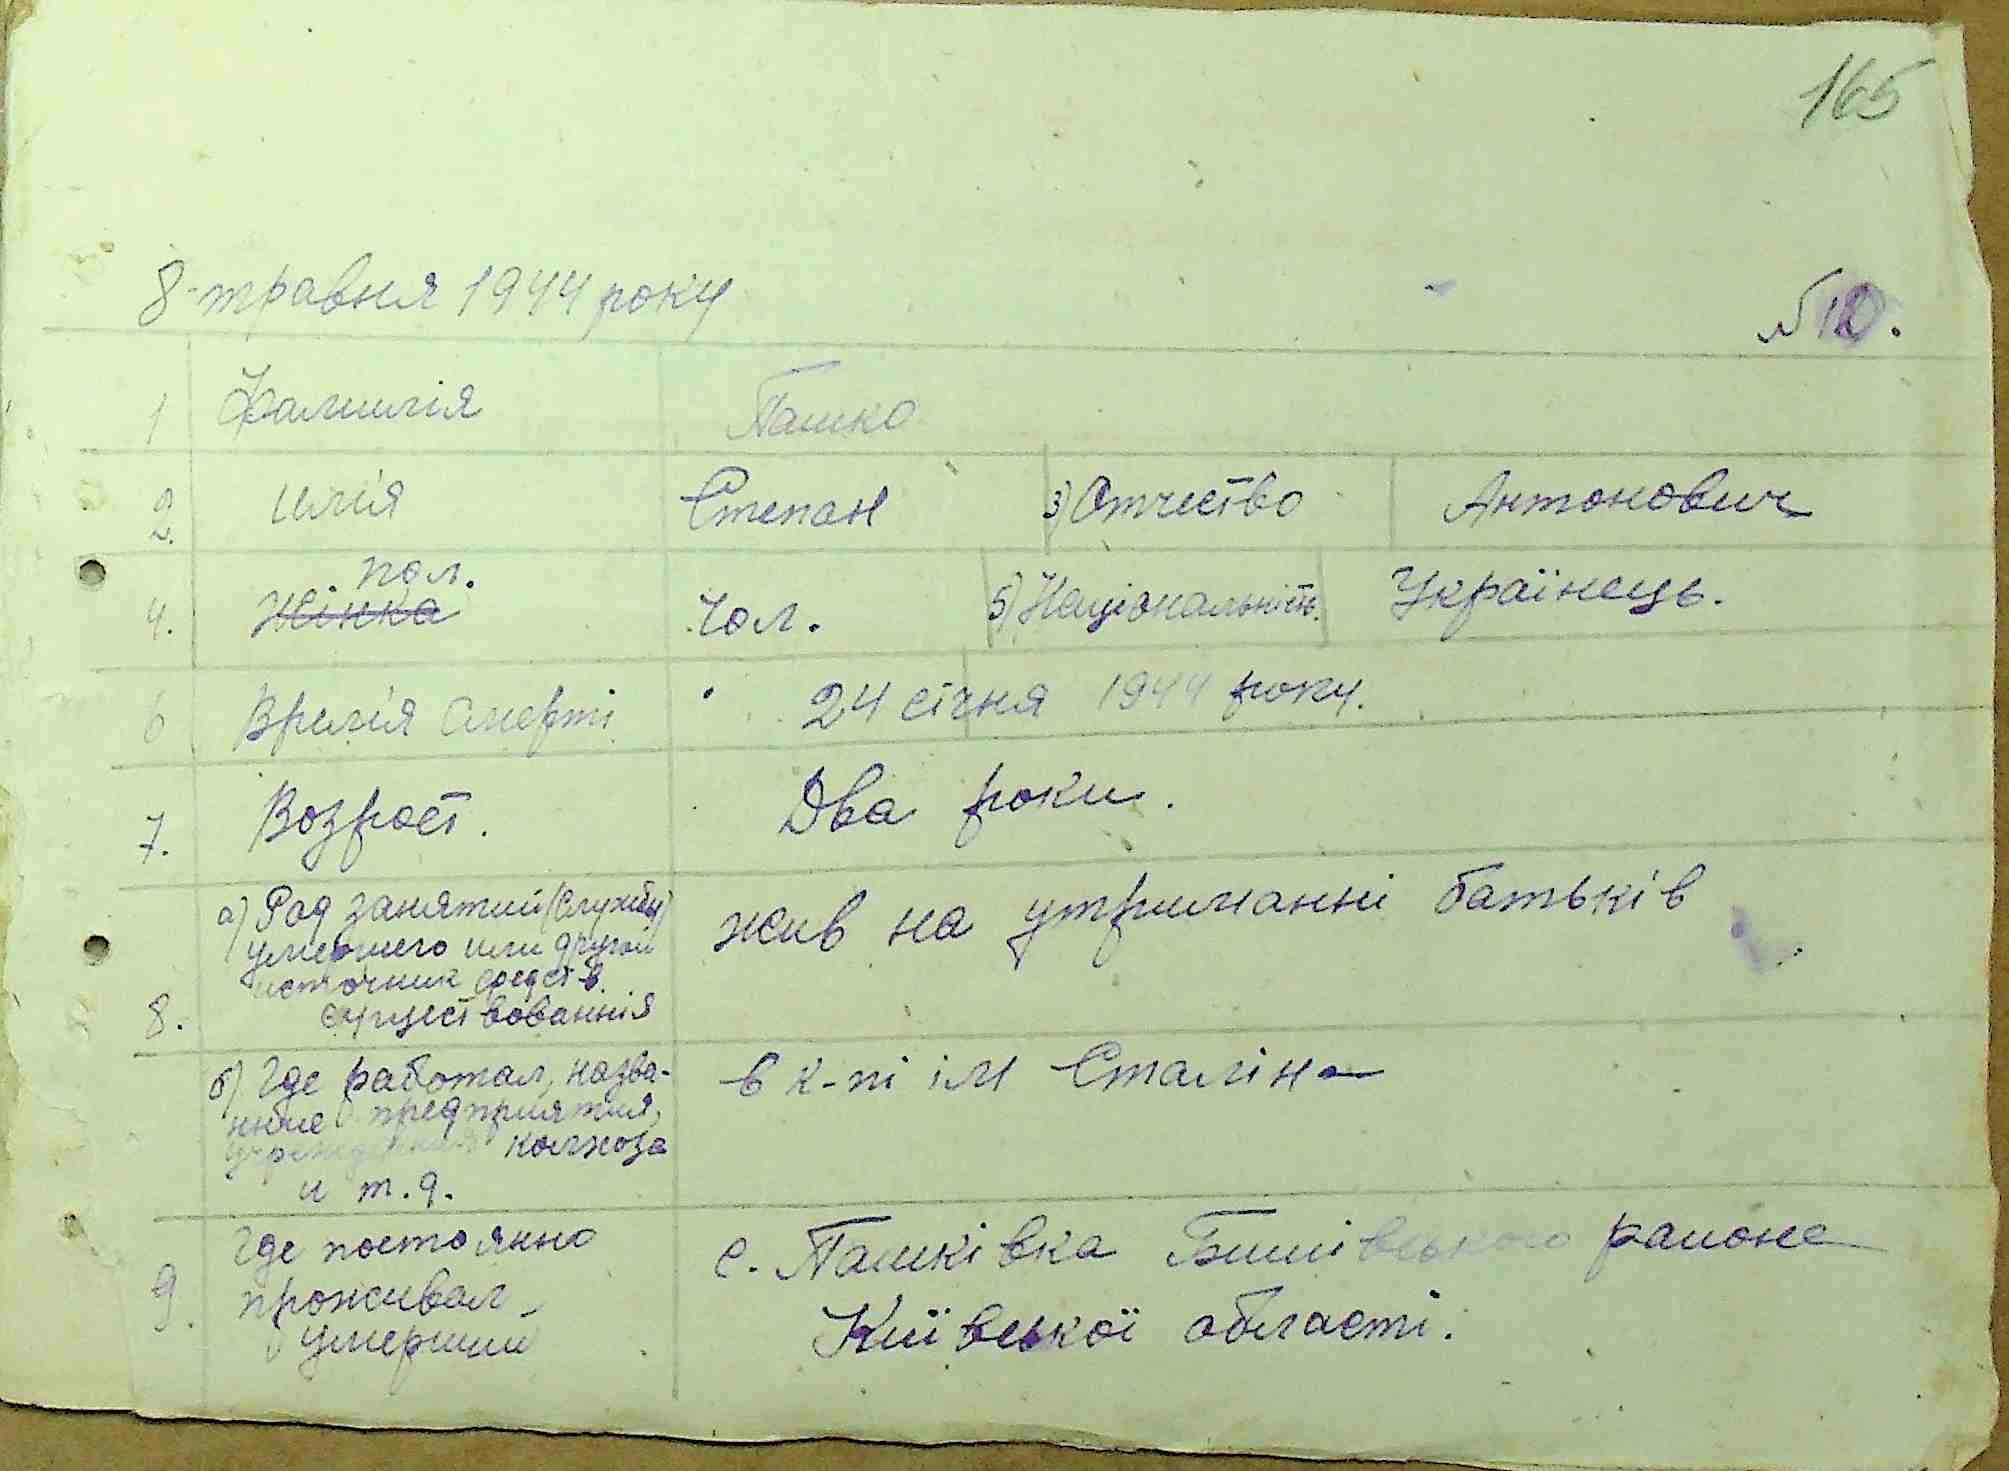 165
8 травня 1944 року
№ 10.
1 Фамилія Пашко
2. имія Степан 3) Отчество Антонович
пол.
4. Жінка Чол. 5) Національність. Українець.
6 Времія Смерті 24 січня 1944 року.
7. Возраст. Два роки.
а) Род занятий (службы) жив на утриманні батьків
умершего или другой
источник средств.
8. существованія
б) Где работал, назва- в к-пі ім Сталіна
ние предприятия,
учреждения колхоза
и т.д.
Где постоянно с. Пашківка Бишівського района
9. проживал
умерший Київської області.